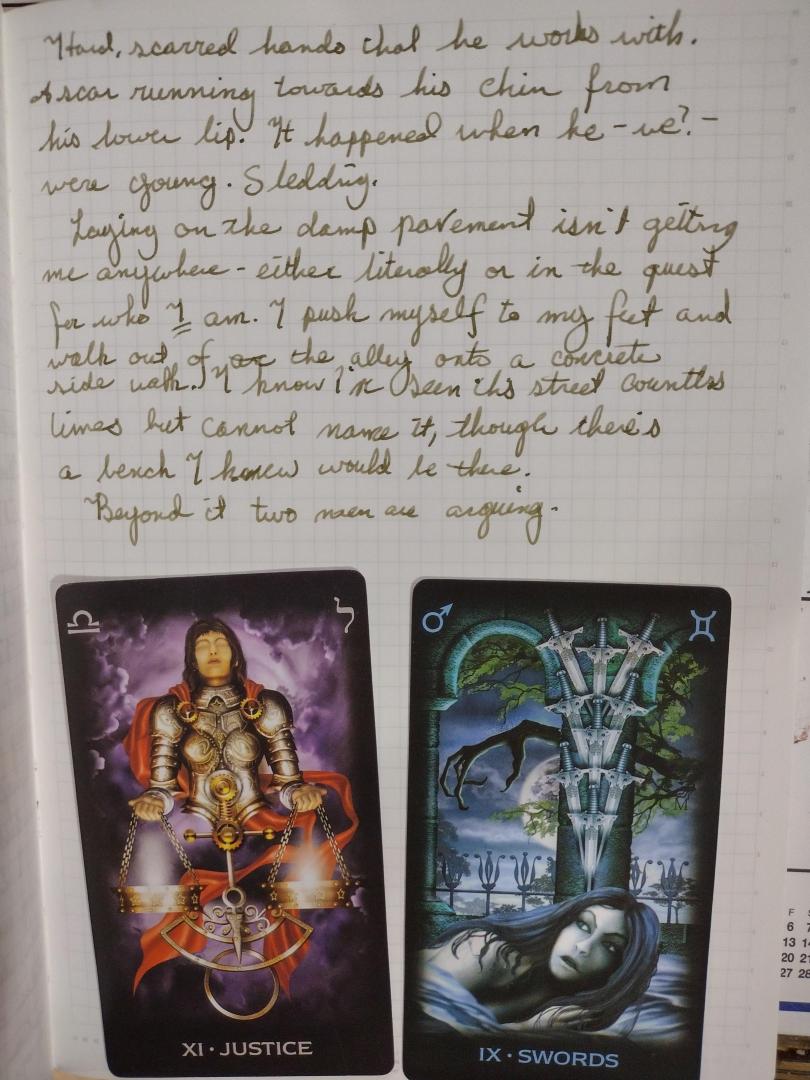 Hard, scarred hands that he works with.
A scar running towards his chin from
his lower lip. It happened when he - we? -
were young. Sledding.
Laying on the damp pavement isn't getting
me anywhere - either literally or in the quest
for who I am. I push myself to my feet and
walk out of the alley onto a concrete
side walk. I know I've seen this street countless
times but cannot name it, though there's
a bench I knew would be there.
Beyond it two men are arguing.
XI · JUSTICE
IX · SWORDS
F S
6 7
13 14
20 21
27 28